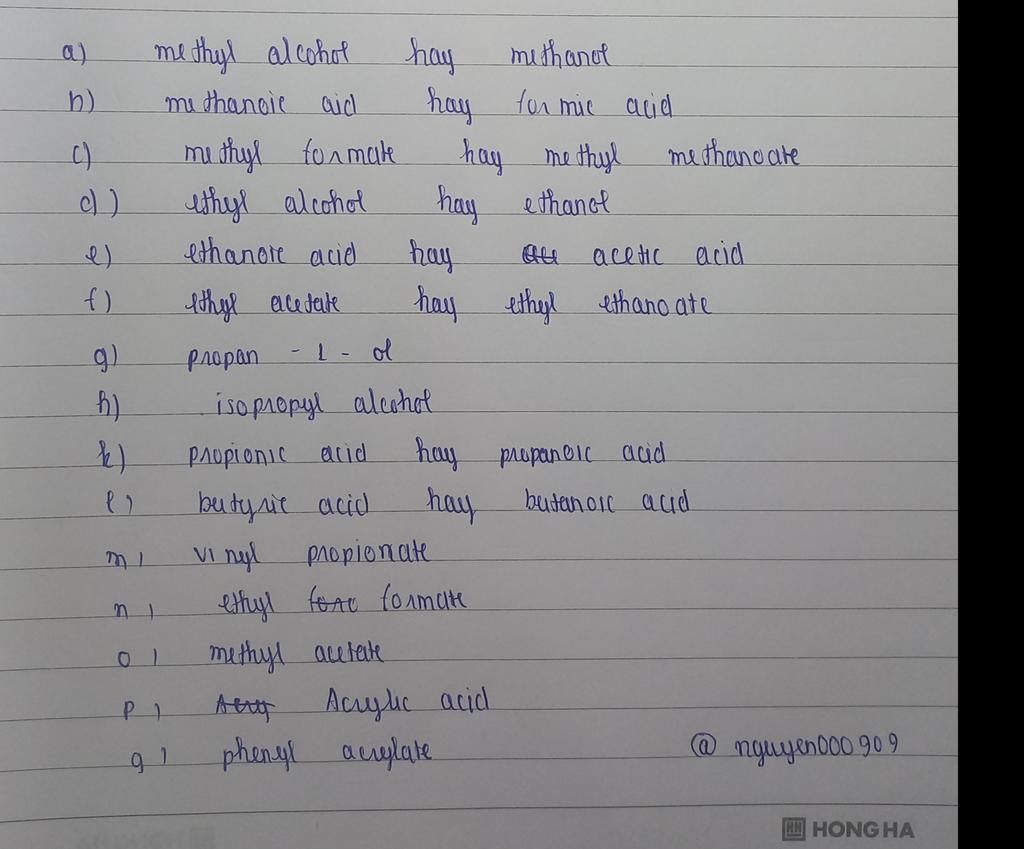 a) methyl alcohol hay methanol
b) methanoic aid hay formic acid
c) methyl formate hay methyl methanoate
d) ethyl alcohol hay ethanol
e) ethanoic acid hay acetic acid
f) ethyl acetate hay ethyl ethanoate
g) propan - 1 - ol
h) isopropyl alcohol
k) propionic acid hay propanoic acid
l) butyric acid hay butanoic acid
m) vinyl propionate
n) ethyl formate
o) methyl acetate
p) Acrylic acid
q) phenyl acrylate @ nguyen000909
HH HONG HA